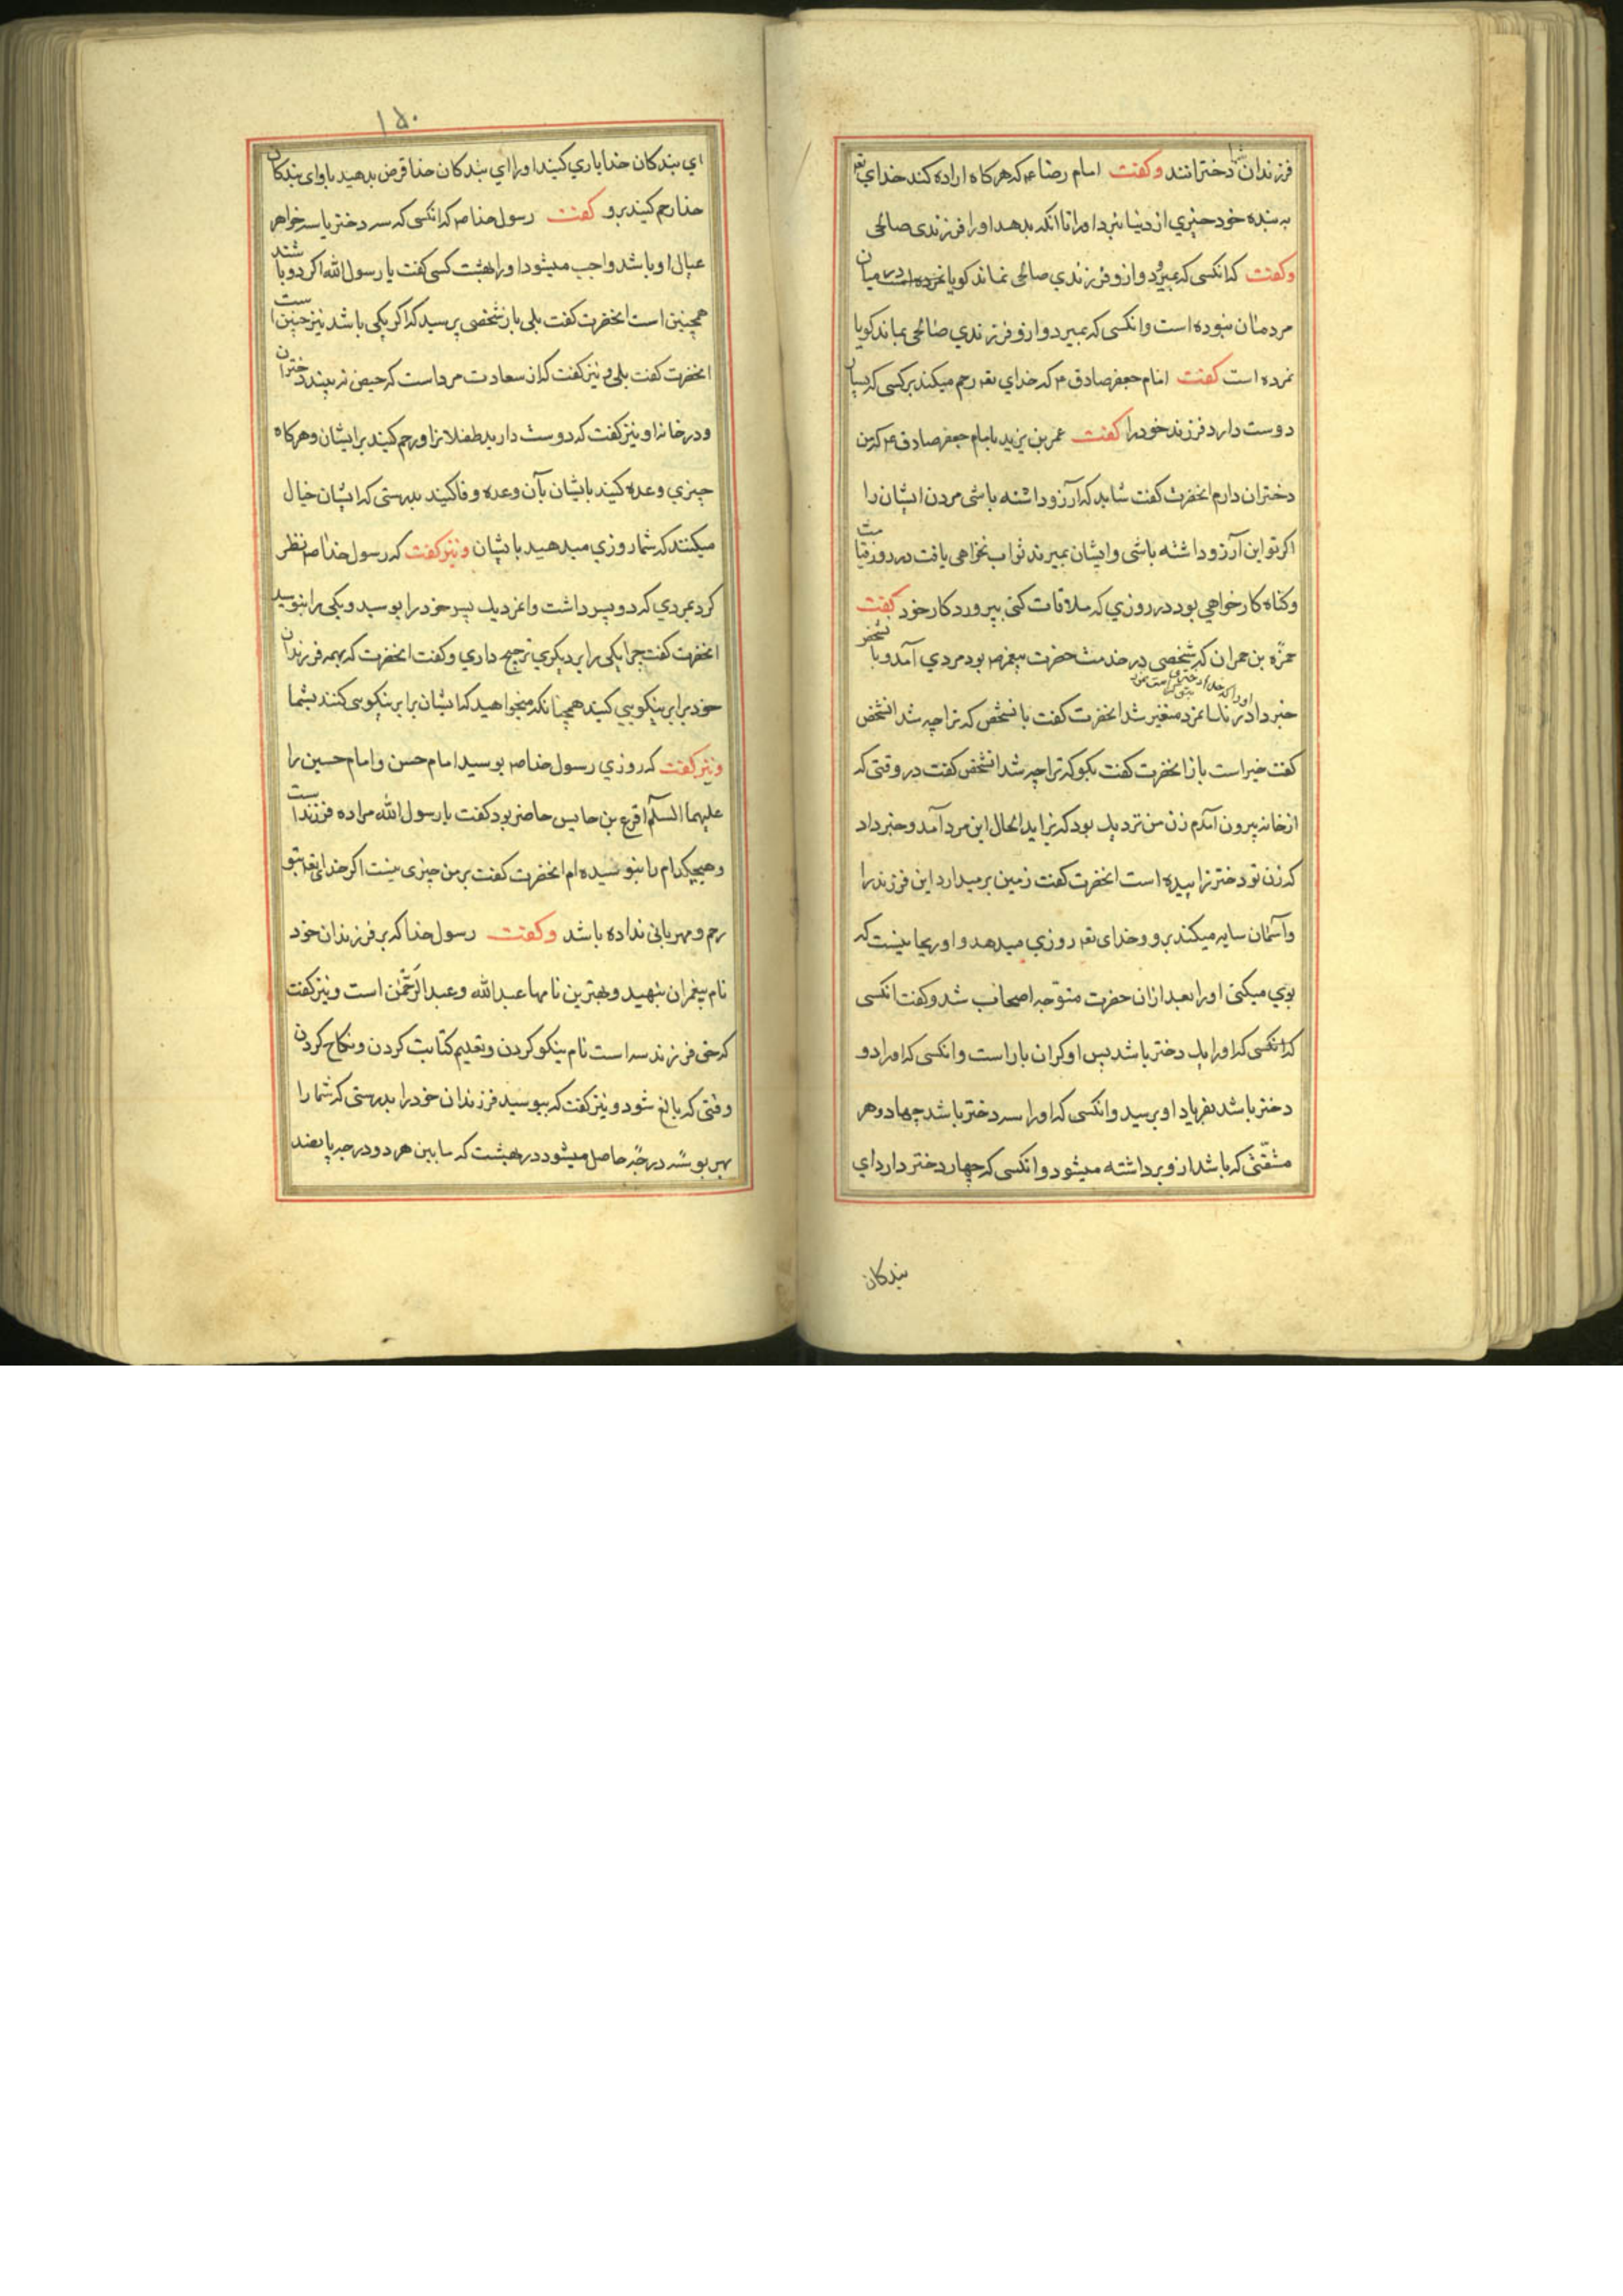 فرزندان شما دخترانند وکفت امام رضا ع که هرکاه اراده کند خدای تعہ
به بنده خود چیزی از دنیا نبرد اورا تا آنکه بدهد اورا فرزندی صالحی
وکفت که انکسی که بمیرد وازو فرزندی صالحی نماند کویا در میان
مردمان نبوده است وانکسی که بمیرد وازو فرزندی صالحی بماند کویا
نمرده است کفت امام جعفر صادق ع که خدای تعہ رحم میکند برکسی که بسیار
دوست دارد فرزند خود را کفت عمر بن یزید بامام جعفر صادق ع که من
دختران دارم انحضرت کفت شاید که آرزو داشته باشی مردن ایشان را
اکر تو این آرزو داشته باشی وایشان بمیرند ثواب نخواهی یافت در روز قیامت
وکناه کار خواهی بود در روزی که ملاقات کنی بپروردکار خود کفت
حمزه بن حمران که شخصی در خدمت حضرت پیغمبر ص بود مردی آمد وبا شخص
خبر داد اورا که متغیر شد انحضرت کفت بانشخص که ترا چه شد انشخص
کفت خیر است باز انحضرت کفت بکو که ترا چه شد انشخص کفت در وقتی که
از خانه بیرون آمدم زن من نزدیک بود که بزاید الحال این مرد آمد وخبر داد
که زن تو دختر زاییده است انحضرت کفت زمین برمیدارد این فرزند را
وآسمان سایه میکند برو وخدای تعہ روزی میدهد واو ریحانیست که
بوی میکنی اورا بعد ازان حضرت متوجه اصحاب شد وکفت انکسی
که انکسی که اورا یک دختر باشد پس او کران بار است وانکسی که اورا دو
دختر باشد بفریاد او برسید وانکسی که اورا سه دختر باشد جهاد وهر
مشقتی که باشد ازو برداشته میشود وانکسی که چهار دختر دارد ای
بندکان
۱۵۰
ای بندکان خدا یاری کنید اورا ای بندکان خدا قرض بدهید باو ای بندکان
خدا رحم کنید برو کفت رسول خدا ص که انکسی که سه دختر یا سه خواهر
عیال او باشد واجب میشود اورا بهشت کسی کفت یا رسول الله اکر دو باشند
همچنین است انحضرت کفت بلی باز شخصی پرسید که اکر یکی باشد نیز چنین است
انحضرت کفت بلی و نیز کفت که از سعادت مرد است که حیض نه بیند دختران
ودر خانه او ونیز کفت که دوست دارید طفلانرا ورحم کنید برایشان وهرکاه
چیزی وعده کنید بایشان بآن وعده وفا کنید بدرستی که ایشان خیال
میکنند که شما روزی میدهید بایشان ونیز کفت که رسول خدا ص نظر
کرد بمردی که دو پسر داشت واز یک پسر خود را بوسید ویکی را نبوسید
انحضرت کفت چرا یکی را بر دیکری ترجیح داری وکفت انحضرت که بهمه فرزندان
خود برابر نیکویی کنید همچنانکه میخواهید که ایشان برابر نیکویی کنند بشما
ونیز کفت که روزی رسول خدا ص بوسید امام حسن وامام حسین را
علیهما السلام اقرع بن حابس حاضر بود کفت یا رسول الله مرا ده فرزند است
وهیچکدام را نبوسیده ام انحضرت کفت بر من چیزی نیست اکر خدای تعہ بتو
رحم ومهربانی نداده باشد وکفت رسول خدا که بر فرزندان خود
نام پیغمبران بنهید وبهترین نامها عبدالله وعبدالرحمن است ونیز کفت
که حق فرزند سه است نام نیکو کردن وتعلیم کتابت کردن ونکاح کردن
وقتی که بالغ شود ونیز کفت که ببوسید فرزندان خود را بدرستی که شما را
بهر بوسه درجه حاصل میشود در بهشت که مابین هر دو درجه پانصد